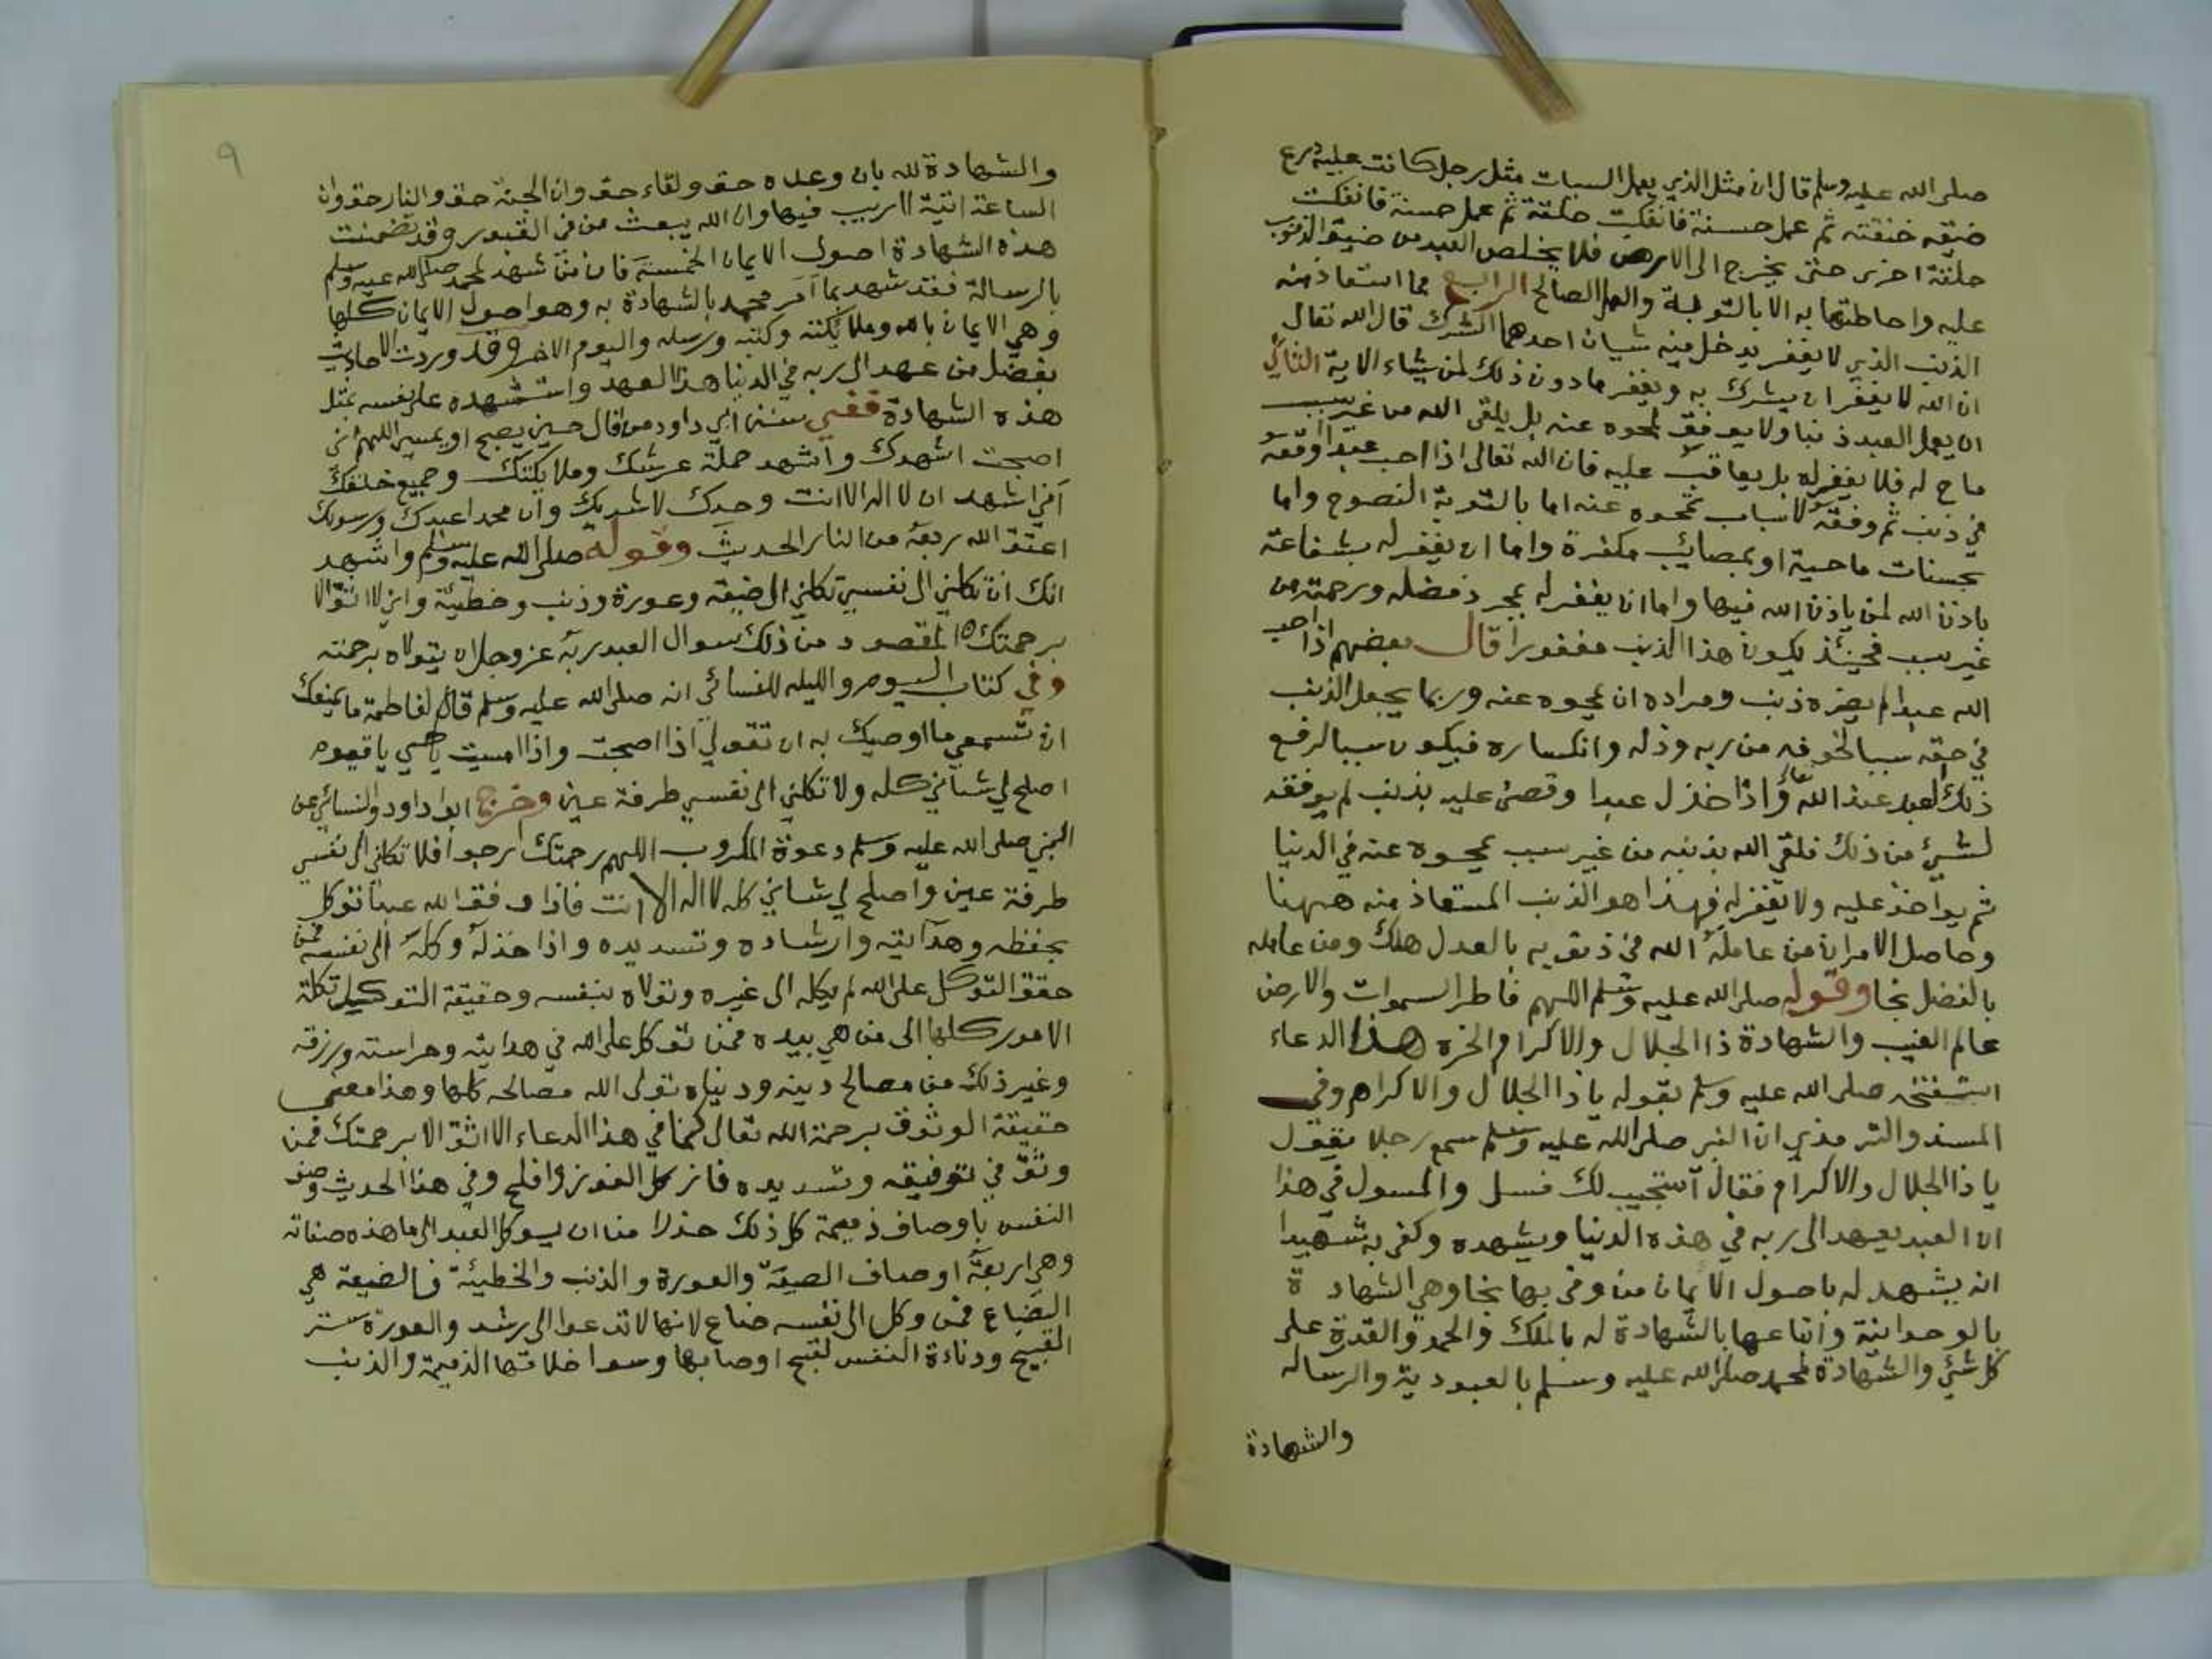 صلى الله عليه وسلم قال ان مثل الذي يعمل السيات مثل رجل كانت عليه درع
ضيقه خنقته ثم عمل حسنة فانفكت حلقة ثم عمل حسنة فانفكت
حلقة اخرى حتى يخرج الى الارض فلا يخلص العبد من ضيق الذنوب
عليه واحاطتها به الا بالتوبة والعمل الصالح الرابع مما استعاذ منه
الذنب الذي لا يغفر يدخل فيه شيان احدهما الشرك قال الله تعالى
ان الله لا يغفر ان يشرك به ويغفر ما دون ذلك لمن يشاء الاية الثاني
ان يعمل العبد ذنبا ولا يوفق لمحوه عنه بل يلقى الله من غير سبب
ماح له فلا يغفر له بل يعاقب عليه فان الله تعالى اذا احب عبدا اوقعه
في ذنب ثم وفقه لاسباب تمحوه عنه اما بالتوبة النصوح واما
بحسنات ماحية او بمصائب مكفرة واما ان يغفر له بشفاعة
باذن الله لمن ياذن الله فيها واما ان يغفر له بمجرد فضله ورحمته من
غير سبب فحينئذ يكون هذا الذنب مغفورا قال بعضهم اذا احب
الله عبدا لم يضره ذنب ومراده ان يمحوه عنه وربما يجعل الذنب
في حقه سببا لخوفه من ربه وذله وانكساره فيكون سببا لرفع
ذلك العبد عند الله واذا خذل عبدا وقضى عليه بذنب لم يوفقه
لشيئ من ذلك فلقي الله بذنبه من غير سبب يمحوه عنه في الدنيا
ثم يواخذ عليه ولا يغفر له فهذا هو الذنب المستعاذ منه ههنا
وحاصل الامر ان من عامله الله في ذنوبه بالعدل هلك ومن عامله
بالفضل نجا وقوله صلى الله عليه وسلم اللهم فاطر السموات والارض
عالم الغيب والشهادة ذا الجلال والاكرام الخره هذا الدعاء
استفتحه صلى الله عليه وسلم بقوله يا ذا الجلال والاكرام وفي
المسند والترمذي ان النبي صلى الله عليه وسلم سمع رجلا يقول
يا ذا الجلال والاكرام فقال استجيب لك فسل والمسول في هذا
ان العبد يعهد الى ربه في هذه الدنيا ويشهده وكفى به شهيدا
انه يشهد له باصول الايمان من وفى بها نجا وهي الشهادة
بالوحدانية واتباعها بالشهادة له بالملك والحمد والقدرة على
كل شيئ والشهادة لمحمد صلى الله عليه وسلم بالعبودية والرساله
والشهادة
٩
والشهادة لله بان وعده حق ولقاءه حق وان الجنة حق والنار حق وان
الساعة اتية لا ريب فيها وان الله يبعث من في القبور وقد تضمنت
هذه الشهادة اصول الايمان الخمسة فان من شهد لمحمد صلى الله عليه وسلم
بالرسالة فقد شهد بما امر محمد بالشهادة به وهو اصول الايمان كلها
وهي الايمان بالله وملائكته وكتبه ورسله واليوم الاخر وقد وردت الاحاديث
بفضل من عهد الى ربه في الدنيا هذا العهد واستشهده على نفسه بمثل
هذه الشهادة ففي سنن ابي داود من قال حين يصبح او يمسي اللهم اني
اصبحت اشهدك واشهد حملة عرشك وملائكتك وجميع خلقك
اني اشهد ان لا اله الا انت وحدك لا شريك وان محمدا عبدك ورسولك
اعتق الله ربعه من النار الحديث وقوله صلى الله عليه وسلم واشهد
انك ان تكلني الى نفسي تكلني الى ضيعة وعورة وذنب وخطيئة واني لا اثق الا
برحمتك المقصود من ذلك سوال العبد ربه عز وجل ان يتولاه برحمته
وفي كتاب اليوم والليله للنسائي انه صلى الله عليه وسلم قال لفاطمة ما يمنعك
ان تسمعي ما اوصيك به ان تقولي اذا اصبحت واذا امسيت يا حي يا قيوم
اصلح لي شاني كله ولا تكلني الى نفسي طرفة عين وخرج ابوا داود والنسائي عن
النبي صلى الله عليه وسلم دعوة المكروب اللهم رحمتك ارجوا فلا تكلني الى نفسي
طرفة عين واصلح لي شاني كله لا اله الا انت فاذا وفق الله عبدا توكل
بحفظه وهدايته وارشاده وتسديده واذا خذله وكله الى نفسه فمن
حقق التوكل على الله لم يكله الى غيره وتولاه بنفسه وحقيقة التوكيل تكلة
الامور كلها الى من هي بيده فمن توكل على الله في هدايته وحراسته ورزقه
وغير ذلك من مصالح دينه ودنياه تولى الله مصالحه كلها وهذا معنى
حقيقة الوثوق برحمة الله تعالى كما في هذا الدعاء الا اثق الا برحمتك فمن
وثق في توفيقه وتسديده فاز كل الفوز وافلح وفي هذا الحديث وصف
النفس باوصاف ذميمة كل ذلك حذرا من ان يوكل العبد الى ما هذه صفاته
وهي اربعة اوصاف الضيعة والعورة والذنب والخطيئة فالضيعة هي
الضياع فمن وكل الى نفسه ضاع لانها لا تدعوا الى رشد والعورة ستر
القبيح ودناءة النفس لقبح اوصافها وسوا خلاقها الذميمة والذنب